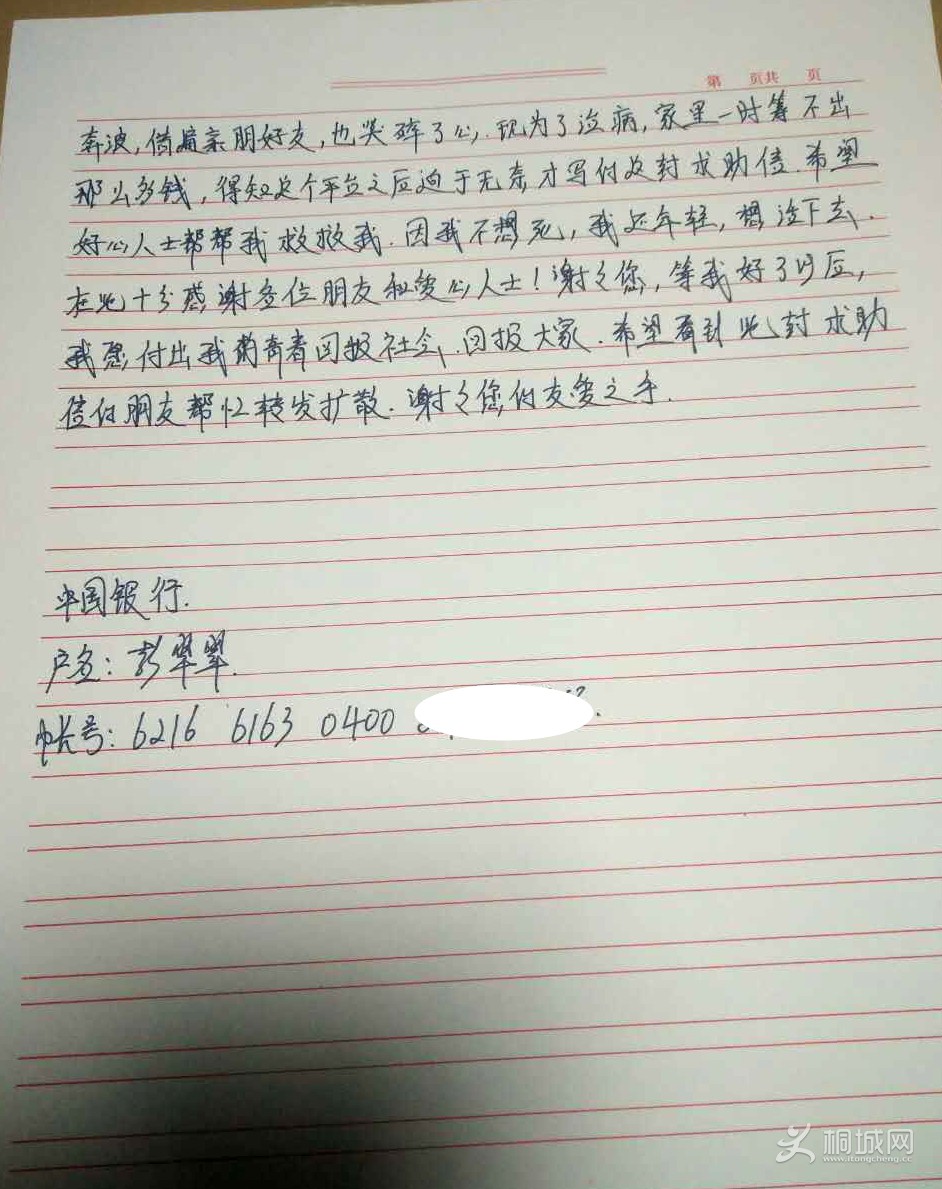 第 页共 页
奔波,借遍亲朋好友,也哭碎了心.现为了治病,家里一时筹不出
那么多钱,得知这个平台之后迫于无奈才写付这封求助信.希望
好心人士帮帮我救救我.因我不想死,我还年轻,想活下去.
在此十分感谢各位朋友和爱心人士!谢谢您,等我好了以后,
我愿付出我的青春回报社会.回报大家.希望看到此封求助
信付朋友帮忙转发扩散.谢谢您付友爱之手.
中国银行.
户名:彭翠翠.
帐号:6216 6163 0400
桐城网
www.itongcheng.cc